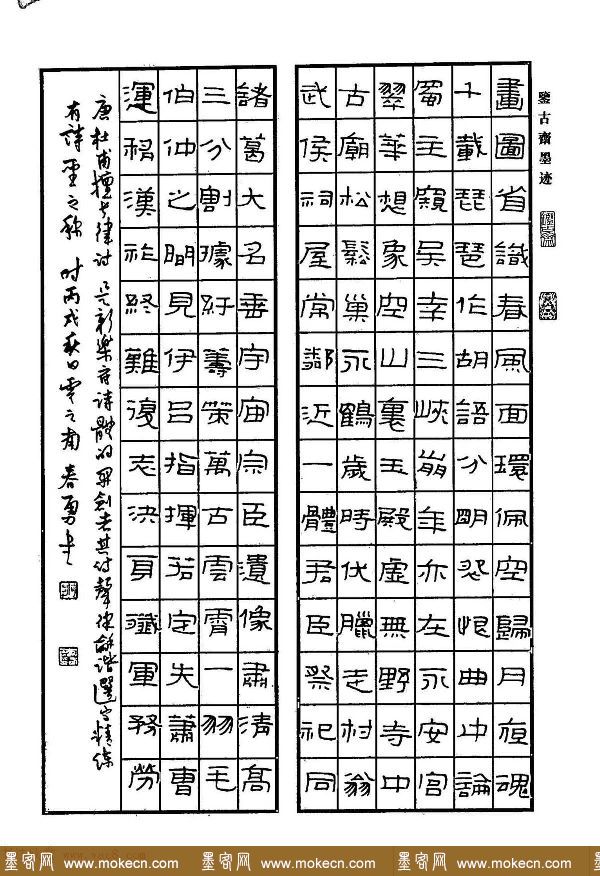 鑒古齋墨迹
畫圖省識春風面環佩空歸月夜魂
千載琵琶作胡語分明怨恨曲中論
蜀主窺吳幸三峽崩年亦在永安宮
翠華想象空山裏玉殿虛無野寺中
古廟松鬆巢水鶴歲時伏臘走村翁
武侯祠屋常鄰近一體君臣祭祀同
諸葛大名垂宇宙宗臣遺像肅清高
三分割據紆籌策萬古雲霄一羽毛
伯仲之間見伊呂指揮若定失蕭曹
運移漢祚終難復志決身殲軍務勞
唐杜甫擅長律詩是新樂府詩體的開創者其詩聲律龢諧選字精煉
有詩聖之稱 時丙戌秋日雲之南春勇書
墨客网 www.mokecn.com 墨客网 www.mokecn.com 墨客网 www.mokecn.com